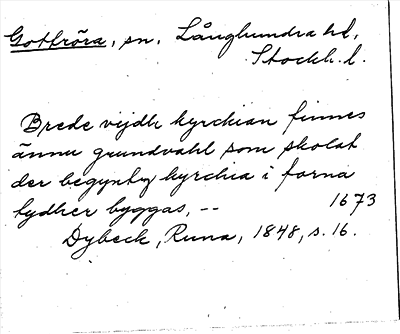 Gottröra, sn. Långhundra hd,
Stockh. l.
Brede vijdh kyrckian finnes
ännu grundvahl som skolat
der begynty kyrchia i forna
tydher byggas, --
1673
Dybeck, Runa, 1848, s. 16.